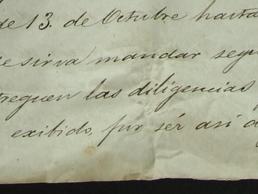 de 13. de Octubre hasta
se sirva mandar seg
treguen las diligencias
exibido, por sér asi d